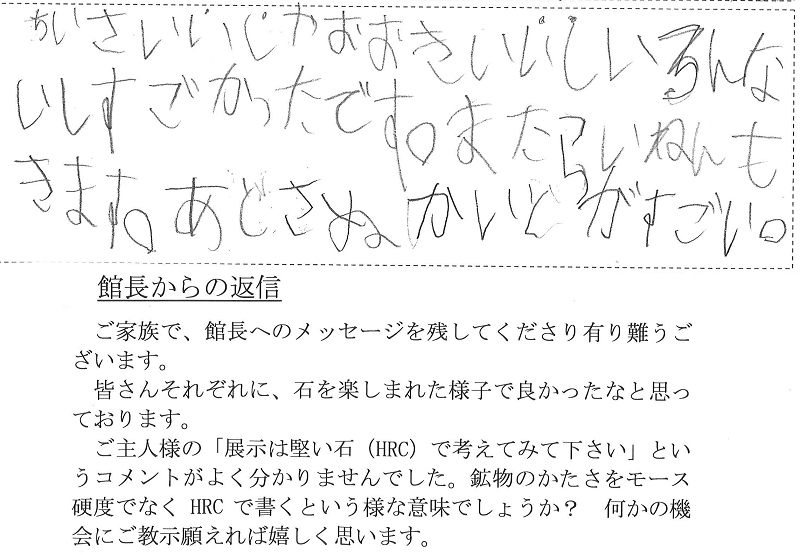 ちいさいいしやおおきいいしいろんな
いしすごかったです。またらいねんも
きます。あとさぬかいとがすごい。
館長からの返信
ご家族で、館長へのメッセージを残してくださり有り難うご
ざいます。
皆さんそれぞれに、石を楽しまれた様子で良かったなと思っ
ております。
ご主人様の「展示は堅い石（HRC）で考えてみて下さい」とい
うコメントがよく分かりませんでした。鉱物のかたさをモース
硬度でなく HRC で書くという様な意味でしょうか？　何かの機
会にご教示願えれば嬉しく思います。